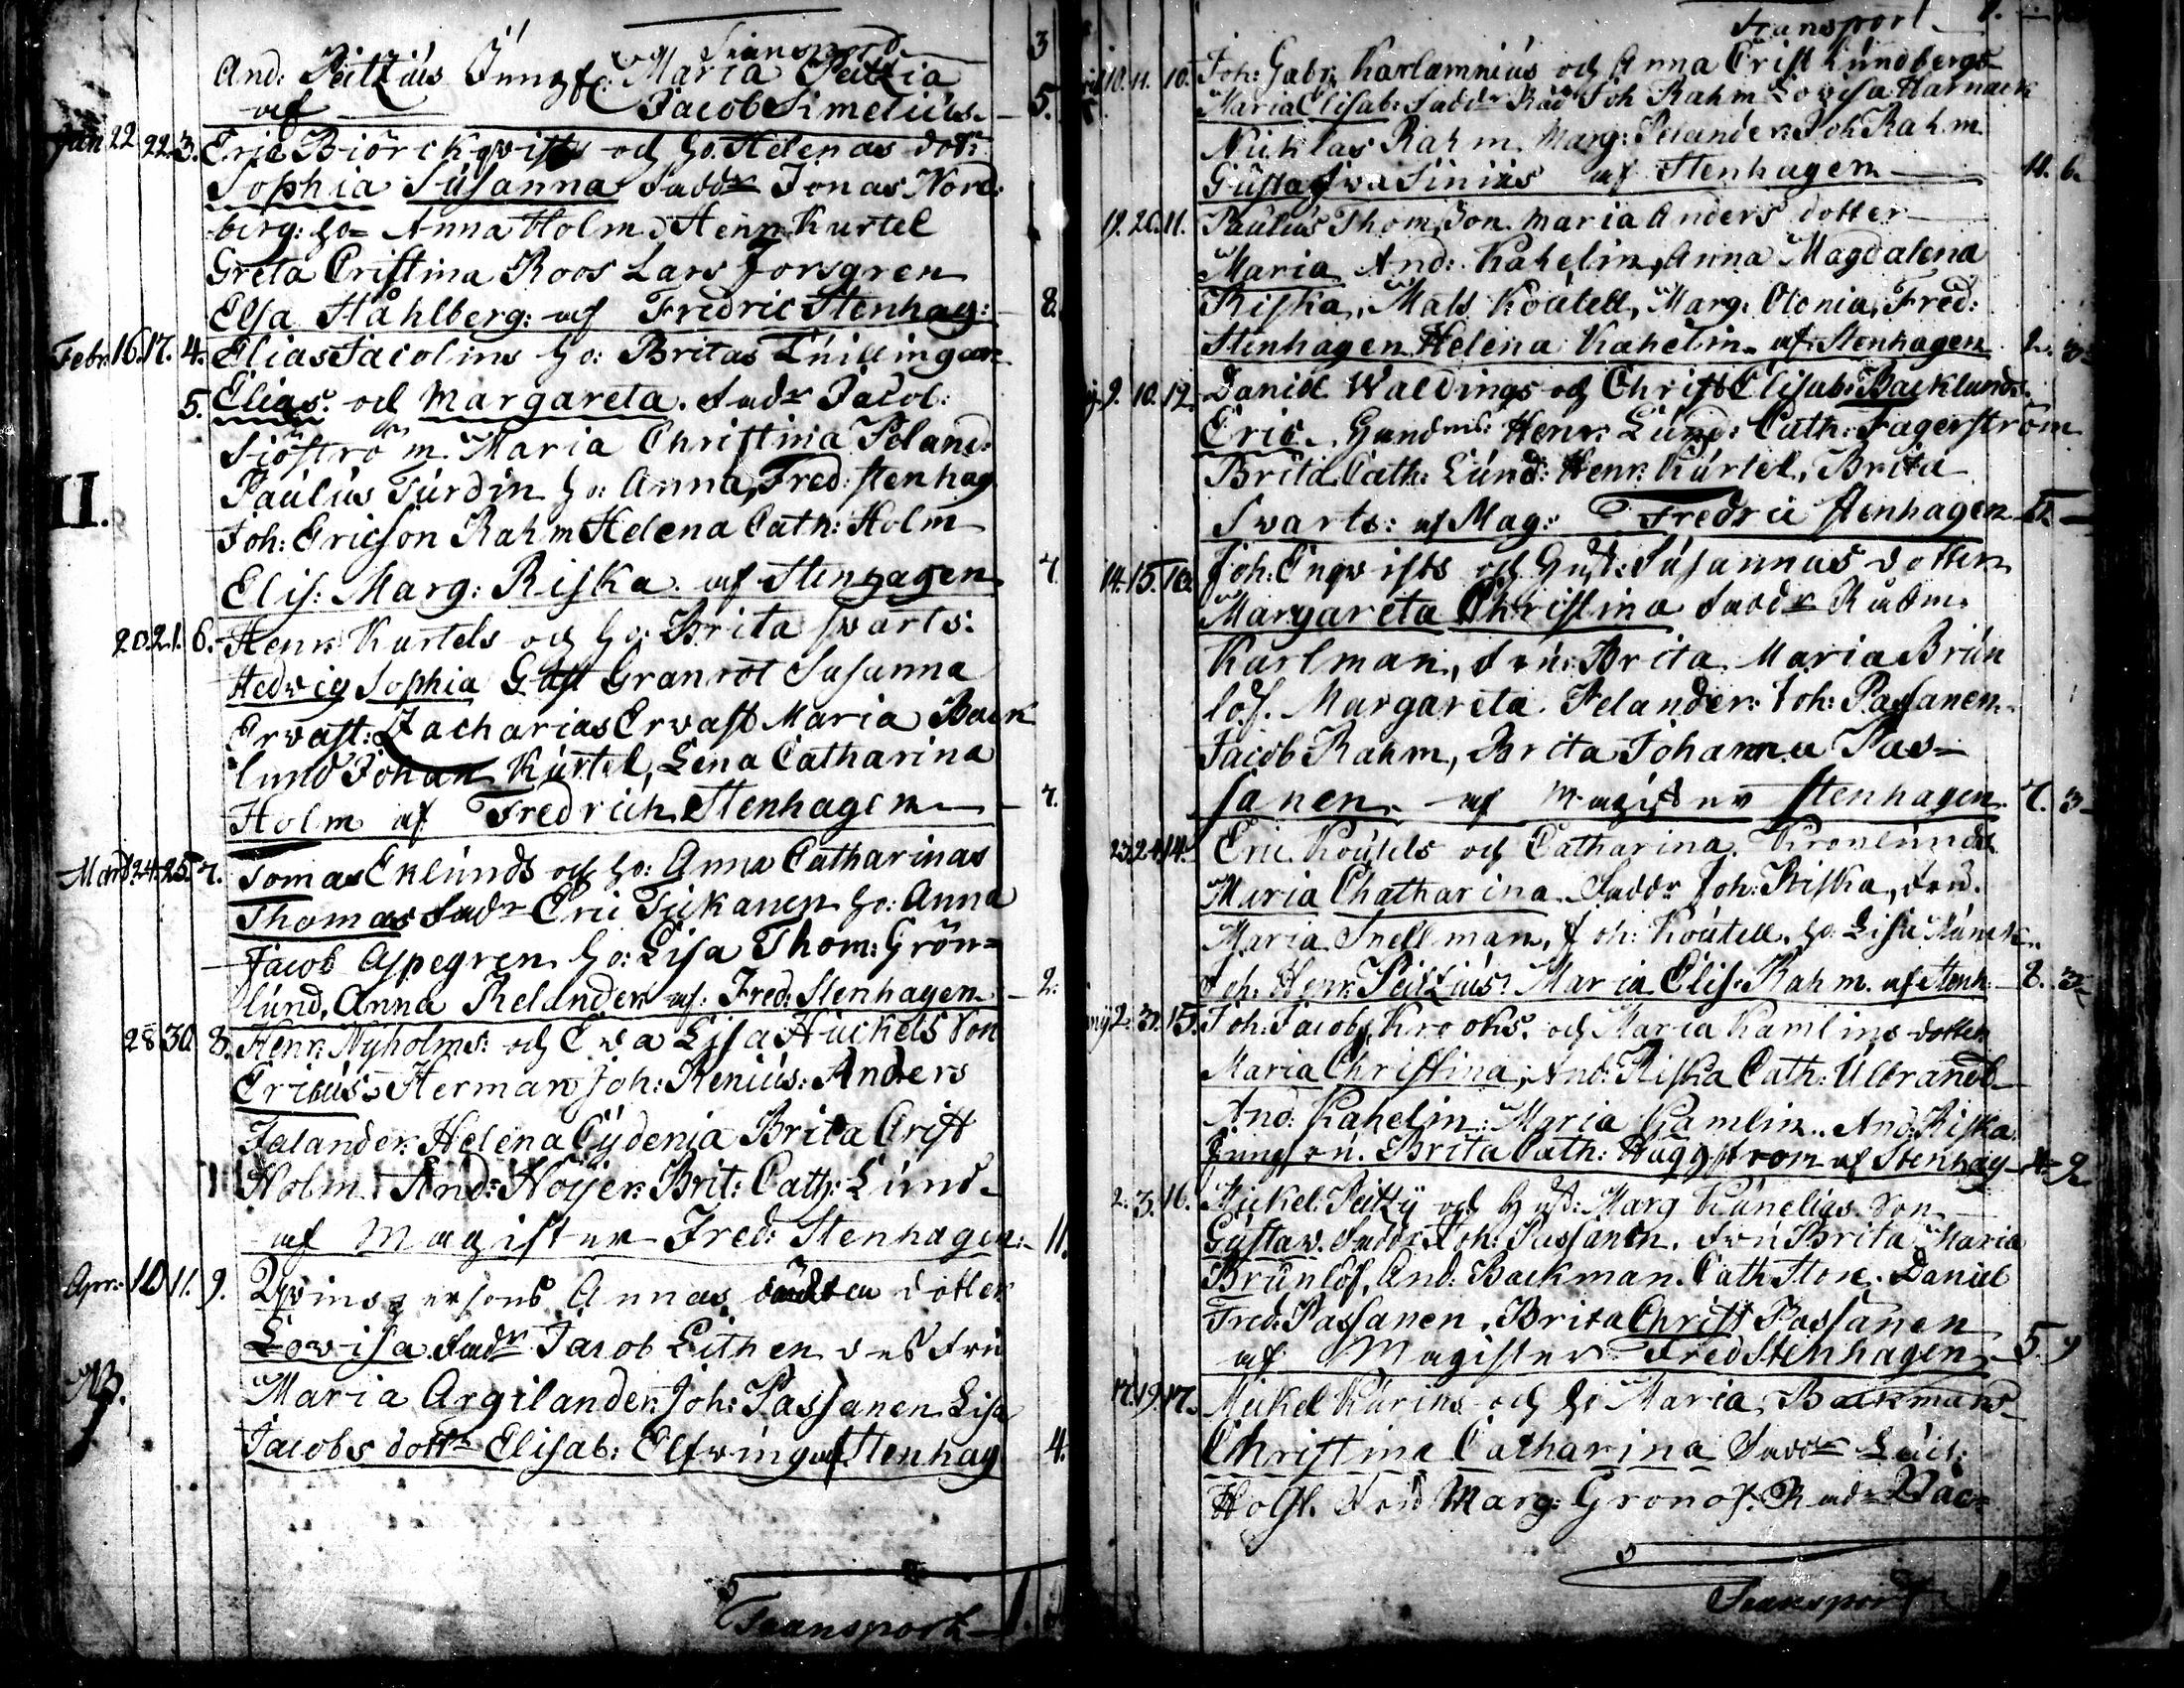 Transport
And: Peitzius Jungf: Maria Peitzia
af Jacob Simelius. 5.
Jan 22 22. 3. Eric Biörckqvists och ho. Helenas dott:
Sophia Susanna Faddr Jonas Nord:
berg: ho= Anna Holm. Henr: Kurtel
Greta Cristina Roos Lars Forsgren
Elsa Ståhlberg: af Fredric Stenhag: 8.
Febr: 16. 17. 4. Elias Jacolins ho: Britas Tuillingar
5. Elias. och Margareta. Fadr Jacob:
Siöström Maria Christina Peland:
Paulus Turdin ho: Anna, Fred: Stenhag
II.
Joh: Ericson Rahm Helena Cath: Holm
Elis: Marg: Riska af Stenhagen 7
20. 21. 6. Henr: Kurtels och ho: Brita Svarts:
Hedvig Sophia Gust Granrot Susanna
Ervast: Zacharias Ervast Maria Back
lund Johan Kurtel, Lena Catharina
Holm af Fredrich Stenhagen 7.
Mart: 24. 25. 7. Tomas Eklunds och ho: Anna Catharinas
Thomas Fadr Eric Tickanen ho: Anna
Jacob Aspegren ho: Lisa Thom: Grön=
lund, Anna Relander af: Fred: Stenhagen 2.
28 30. 8. Henr: Nyholms: och Eva Lisa Huckels Son
Ericus. Herman Joh: Renius: Anders
Falander Helena Cydenia Brita Crist
Holm. And: Höijer: Brit: Cath: Lund
af Magister Fred: Stenhagen: 11.
Apr: 10 11. 9. Qvinspersons Annas dotter
Lovisa Fadr Jacob Lithen des Fru
NB.
Maria Argilander Joh: Passanen Lisa
Jacobs dottr Elisab: Elfving af Stenhag 4.
Transport
Transport
10. 11. 10. Joh: Gabr: Karlamnius och Anna Crist Lundbergs
Maria Elisab: Faddr Råd Joh Rahm Lovisa Harnack
Nicklas Rahm. Marg: Pelander Joh Rahm
Gustaf Vasinius af Stenhagen 11. 6.
19. 20. 11. Paulus Thom Son Maria Anders dotter
Maria And: Kahelin, Anna Magdalena
Riska, Mats Koutell, Marg: Otonia, Fred:
Stenhagen Helena Kahelin af Stenhagen 2. 3
9. 10. 12. Daniel Waldings och Christ Elisab: Backlunds
Eric. Henr: Lund: Cath: Fagerström
Brita Cath: Lund: Henr: Kurtel, Brita
Svarts: af Mag: Fredric Stenhagen
14. 15. 13. Joh: Engvists och Hust: Susannas dotter
Margareta Christina Faddr Rådm.
Karlman, Fru: Brita Maria Brun
löf. Margareta Pelander: Joh: Passanen
Jacob Rahm, Brita Johanna Pas=
sanen. af Magister Stenhagen. 7. 3
23. 24. 14. Eric Koutels och Catharina Kronlunds
Maria Chatharina. Faddr Joh: Riska, Fru.
Maria Snellman, Joh: Koutell, ho. Lisa Munck
Joh: Henr: Peitzius: Maria Elis: Rahm. af Stenh: 8. 3
2. 3. 15. Joh: Jacobs Krooks. och Maria Kamlins dotter
Maria Christina, And: Riska Cath: Ulbrandt
And: Kahelin: Maria Kamlin. And: Riska.
Jungfru. Brita Cath: Häggström af Stenhag
2. 3. 16. Mickel: Peitzij och Hust: Marg Kunelias Son
Gustav. Faddr Joh: Passanen. Fru Brita Maria
Brunlöf, And: Backman. Cath Daniel
Fred: Passanen. Brita Christ Passanen
af Magister Fred Stenhagen 5. 9
17. 19. 17. Mickel Kurins och ho Maria Backmans
Christina Catharina Faddr Leut:
Holst. Fru Marg: Gronof. Vac=
Transport